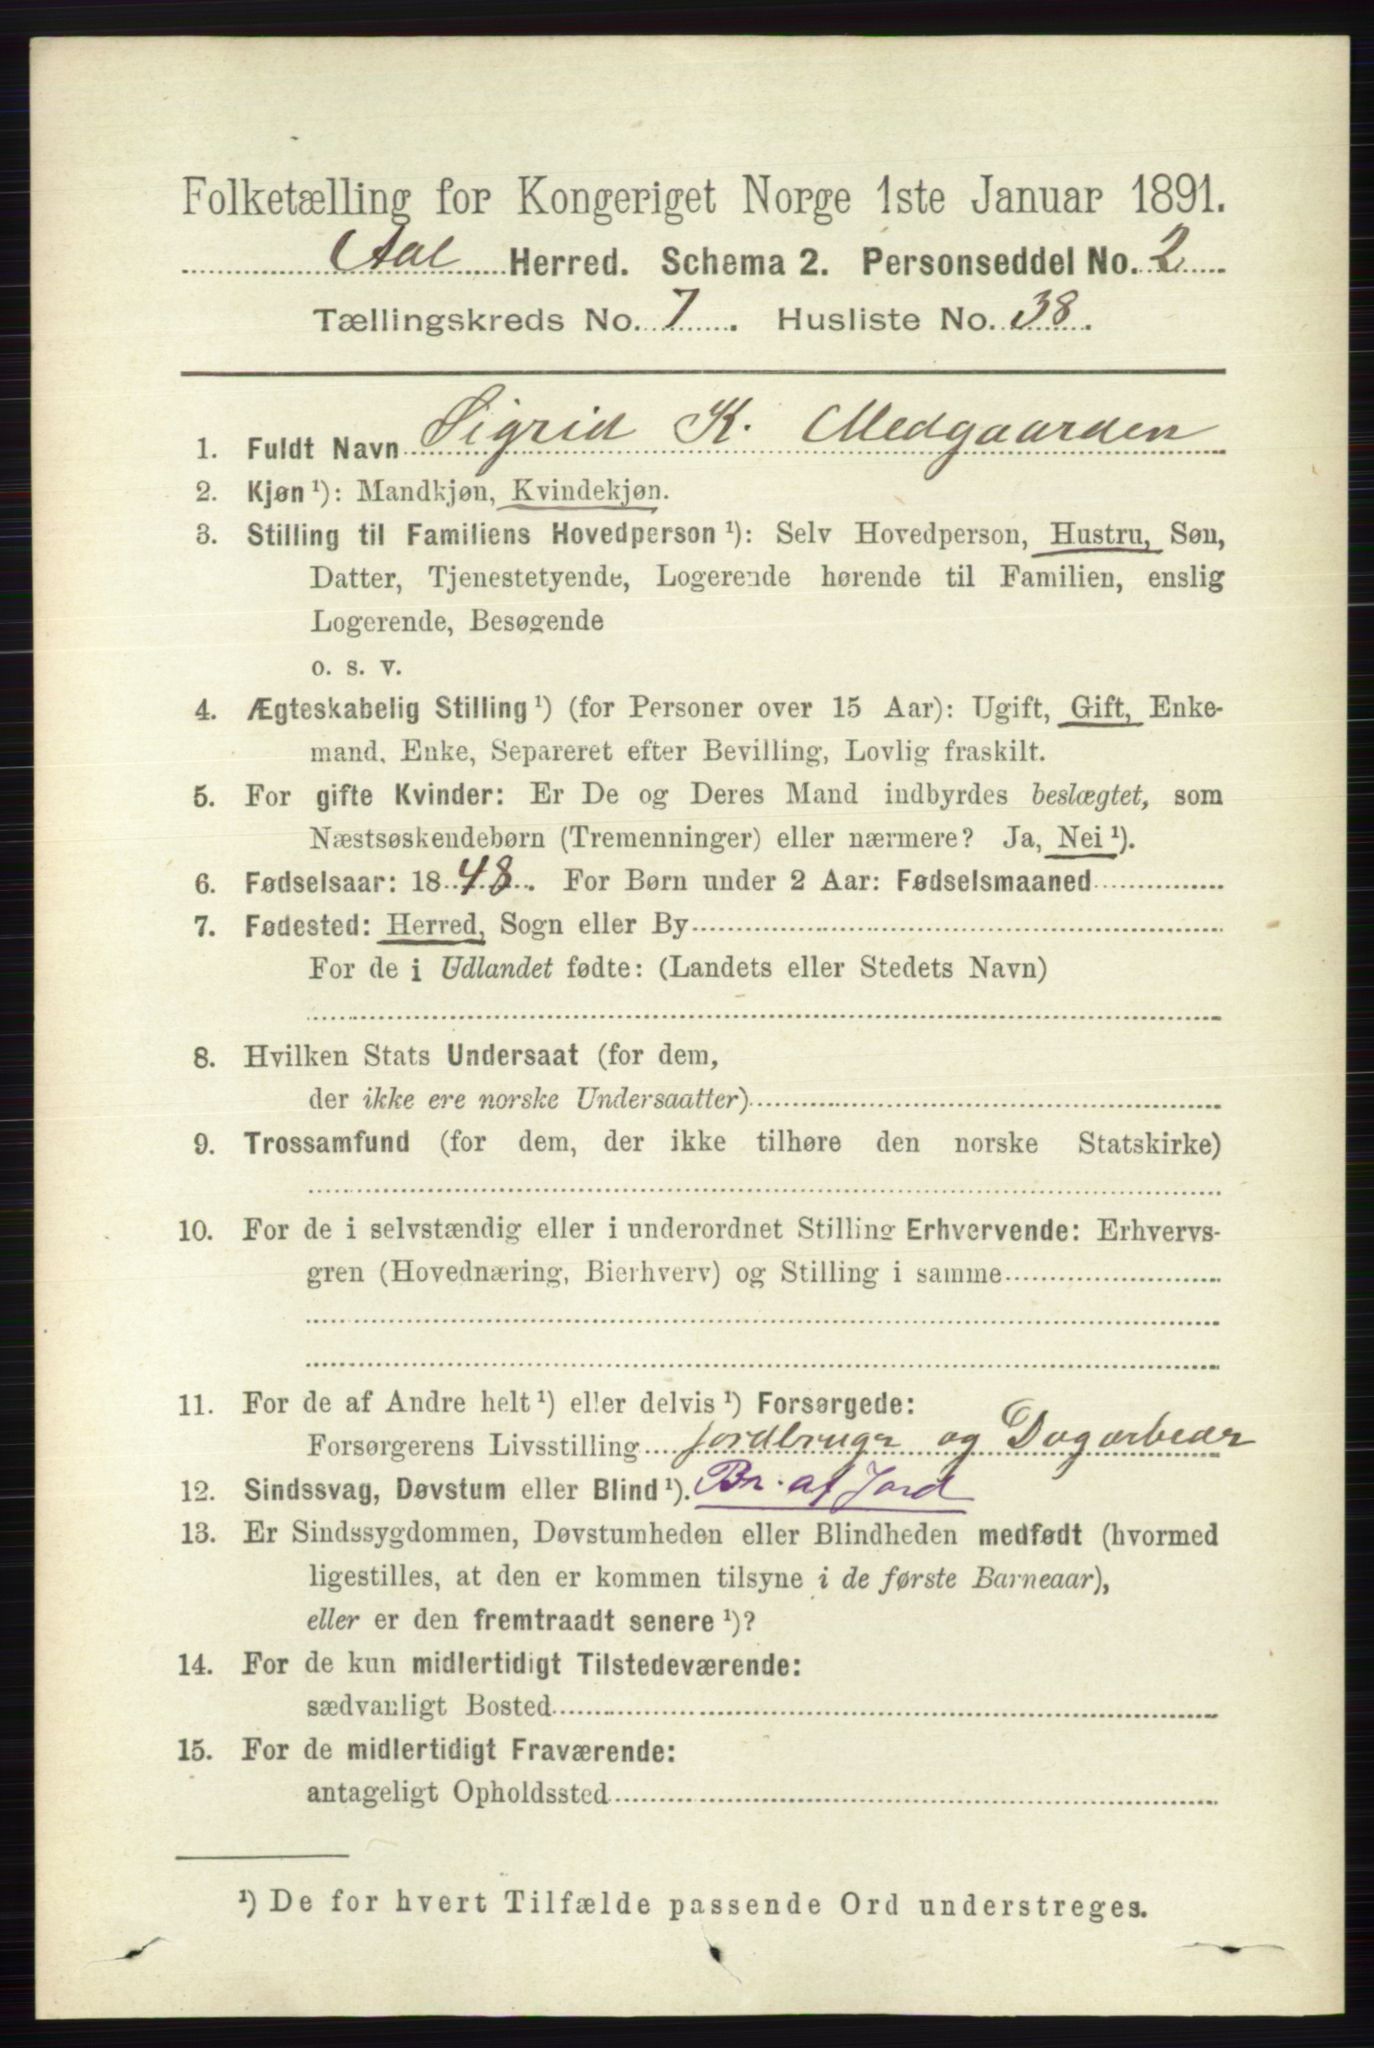 Folketælling for Kongeriget Norge 1ste Januar 1891.
Aal Herred. Schema 2. Personseddel No. 2
Tællingskreds No. 7. Husliste No. 38.
1. Fuldt Navn Sigrid K. Medgaarden
2. Kjøn ¹): Mandkjøn, Kvindekjøn.
3. Stilling til Familiens Hovedperson ¹): Selv Hovedperson, Hustru, Søn,
Datter, Tjenestetyende, Logerende hørende til Familien, enslig
Logerende, Besøgende
o. s. v.
4. Ægteskabelig Stilling ¹) (for Personer over 15 Aar): Ugift, Gift, Enke-
mand, Enke, Separeret efter Bevilling, Lovlig fraskilt.
5. For gifte Kvinder: Er De og Deres Mand indbyrdes beslægtet, som
Næstsøskendebørn (Tremenninger) eller nærmere? Ja, Nei ¹).
6. Fødselsaar: 1848. For Børn under 2 Aar: Fødselsmaaned
7. Fødested: Herred, Sogn eller By
For de i Udlandet fødte: (Landets eller Stedets Navn)
8. Hvilken Stats Undersaat (for dem,
der ikke ere norske Undersaatter)
9. Trossamfund (for dem, der ikke tilhøre den norske Statskirke)
10. For de i selvstændig eller i underordnet Stilling Erhvervende: Erhvervs-
gren (Hovednæring, Bierhverv) og Stilling i samme
11. For de af Andre helt ¹) eller delvis ¹) Forsørgede:
Forsørgerens Livsstilling jordbruger og Dagarbeider
12. Sindssvag, Døvstum eller Blind ¹). Br. af Jord
13. Er Sindssygdommen, Døvstumheden eller Blindheden medfødt (hvormed
ligestilles, at den er kommen tilsyne i de første Barneaar),
eller er den fremtraadt senere ¹)?
14. For de kun midlertidigt Tilstedeværende:
sædvanligt Bosted
15. For de midlertidigt Fraværende:
antageligt Opholdssted
¹) De for hvert Tilfælde passende Ord understreges.